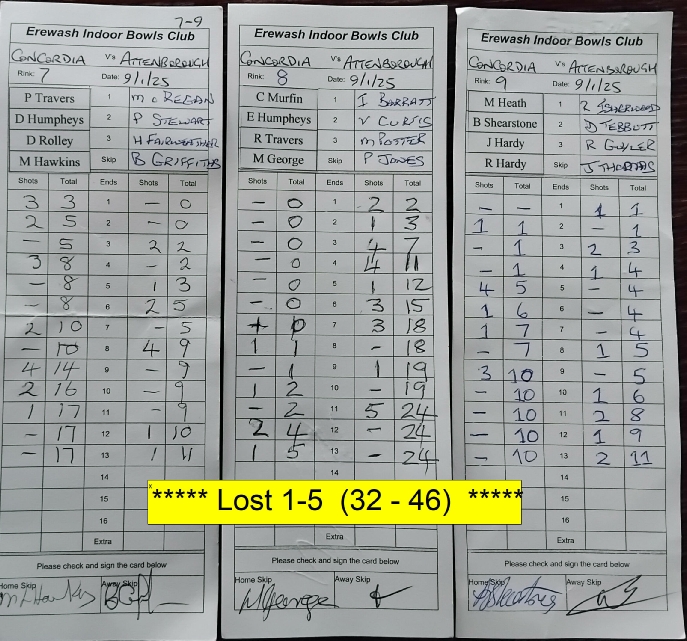 7-9
Erewash Indoor Bowls Club
CONCORDIA Vs ATTENBOROUGH
Rink: 7 Date: 9/1/25
P Travers 1 M O REGAN
D Humpheys 2 P STEWART
D Rolley 3 H FAIRWEATHER
M Hawkins Skip B GRIFFITHS
Shots Total Ends Shots Total
3 3 1 - 0
2 5 2 - 0
- 5 3 2 2
3 8 4 - 2
- 8 5 1 3
- 8 6 2 5
2 10 7 - 5
- 10 8 4 9
4 14 9 - 9
2 16 10 - 9
1 17 11 - 9
- 17 12 1 10
- 17 13 1 11
14
15
16
Extra
Please check and sign the card below
Home Skip Away Skip
Erewash Indoor Bowls Club
CONCORDIA Vs ATTENBOROUGH
Rink: 8 Date: 9/1/25
C Murfin 1 I BARRATT
E Humpheys 2 V CURTIS
R Travers 3 M POTTER
M George Skip P JONES
Shots Total Ends Shots Total
- 0 1 2 2
- 0 2 1 3
- 0 3 4 7
- 0 4 4 11
- 0 5 1 12
- 0 6 3 15
0 7 3 18
1 1 8 - 18
- 1 9 1 19
1 2 10 - 19
- 2 11 5 24
2 4 12 - 24
1 5 13 - 24
14
Extra
Please check and sign the card below
Home Skip Away Skip
M George
Erewash Indoor Bowls Club
CONCORDIA Vs ATTENBOROUGH
Rink: 9 Date: 9/1/25
M Heath 1 R ISHERWOOD
B Shearstone 2 D TEBBUTT
J Hardy 3 R GUYLER
R Hardy Skip J THOMAS
Shots Total Ends Shots Total
- - 1 1 1
1 1 2 - 1
- 1 3 2 3
- 1 4 1 4
4 5 5 - 4
1 6 6 - 4
1 7 7 - 4
- 7 8 1 5
3 10 9 - 5
- 10 10 1 6
- 10 11 2 8
- 10 12 1 9
- 10 13 2 11
14
15
16
Extra
Please check and sign the card below
Home Skip Away Skip
***** Lost 1-5 (32 - 46) *****